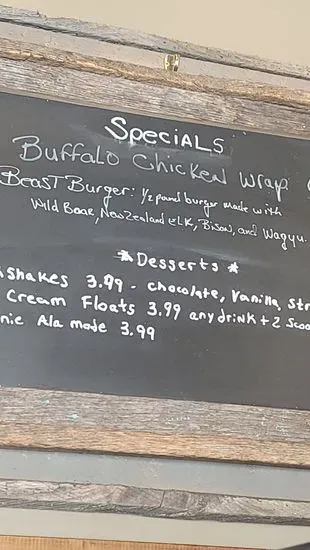 SpeciALS
Buffalo Chicken Wrap
Beast Burger: 1/2 pound burger made with
Wild Boar, New Zealand eLK, Bison, and Wagyu.
* Desserts *
shakes 3.99 - chocolate, Vanilla, Str
Cream Floats 3.99 any drink + 2 Scoo
nie Ala mode 3.99